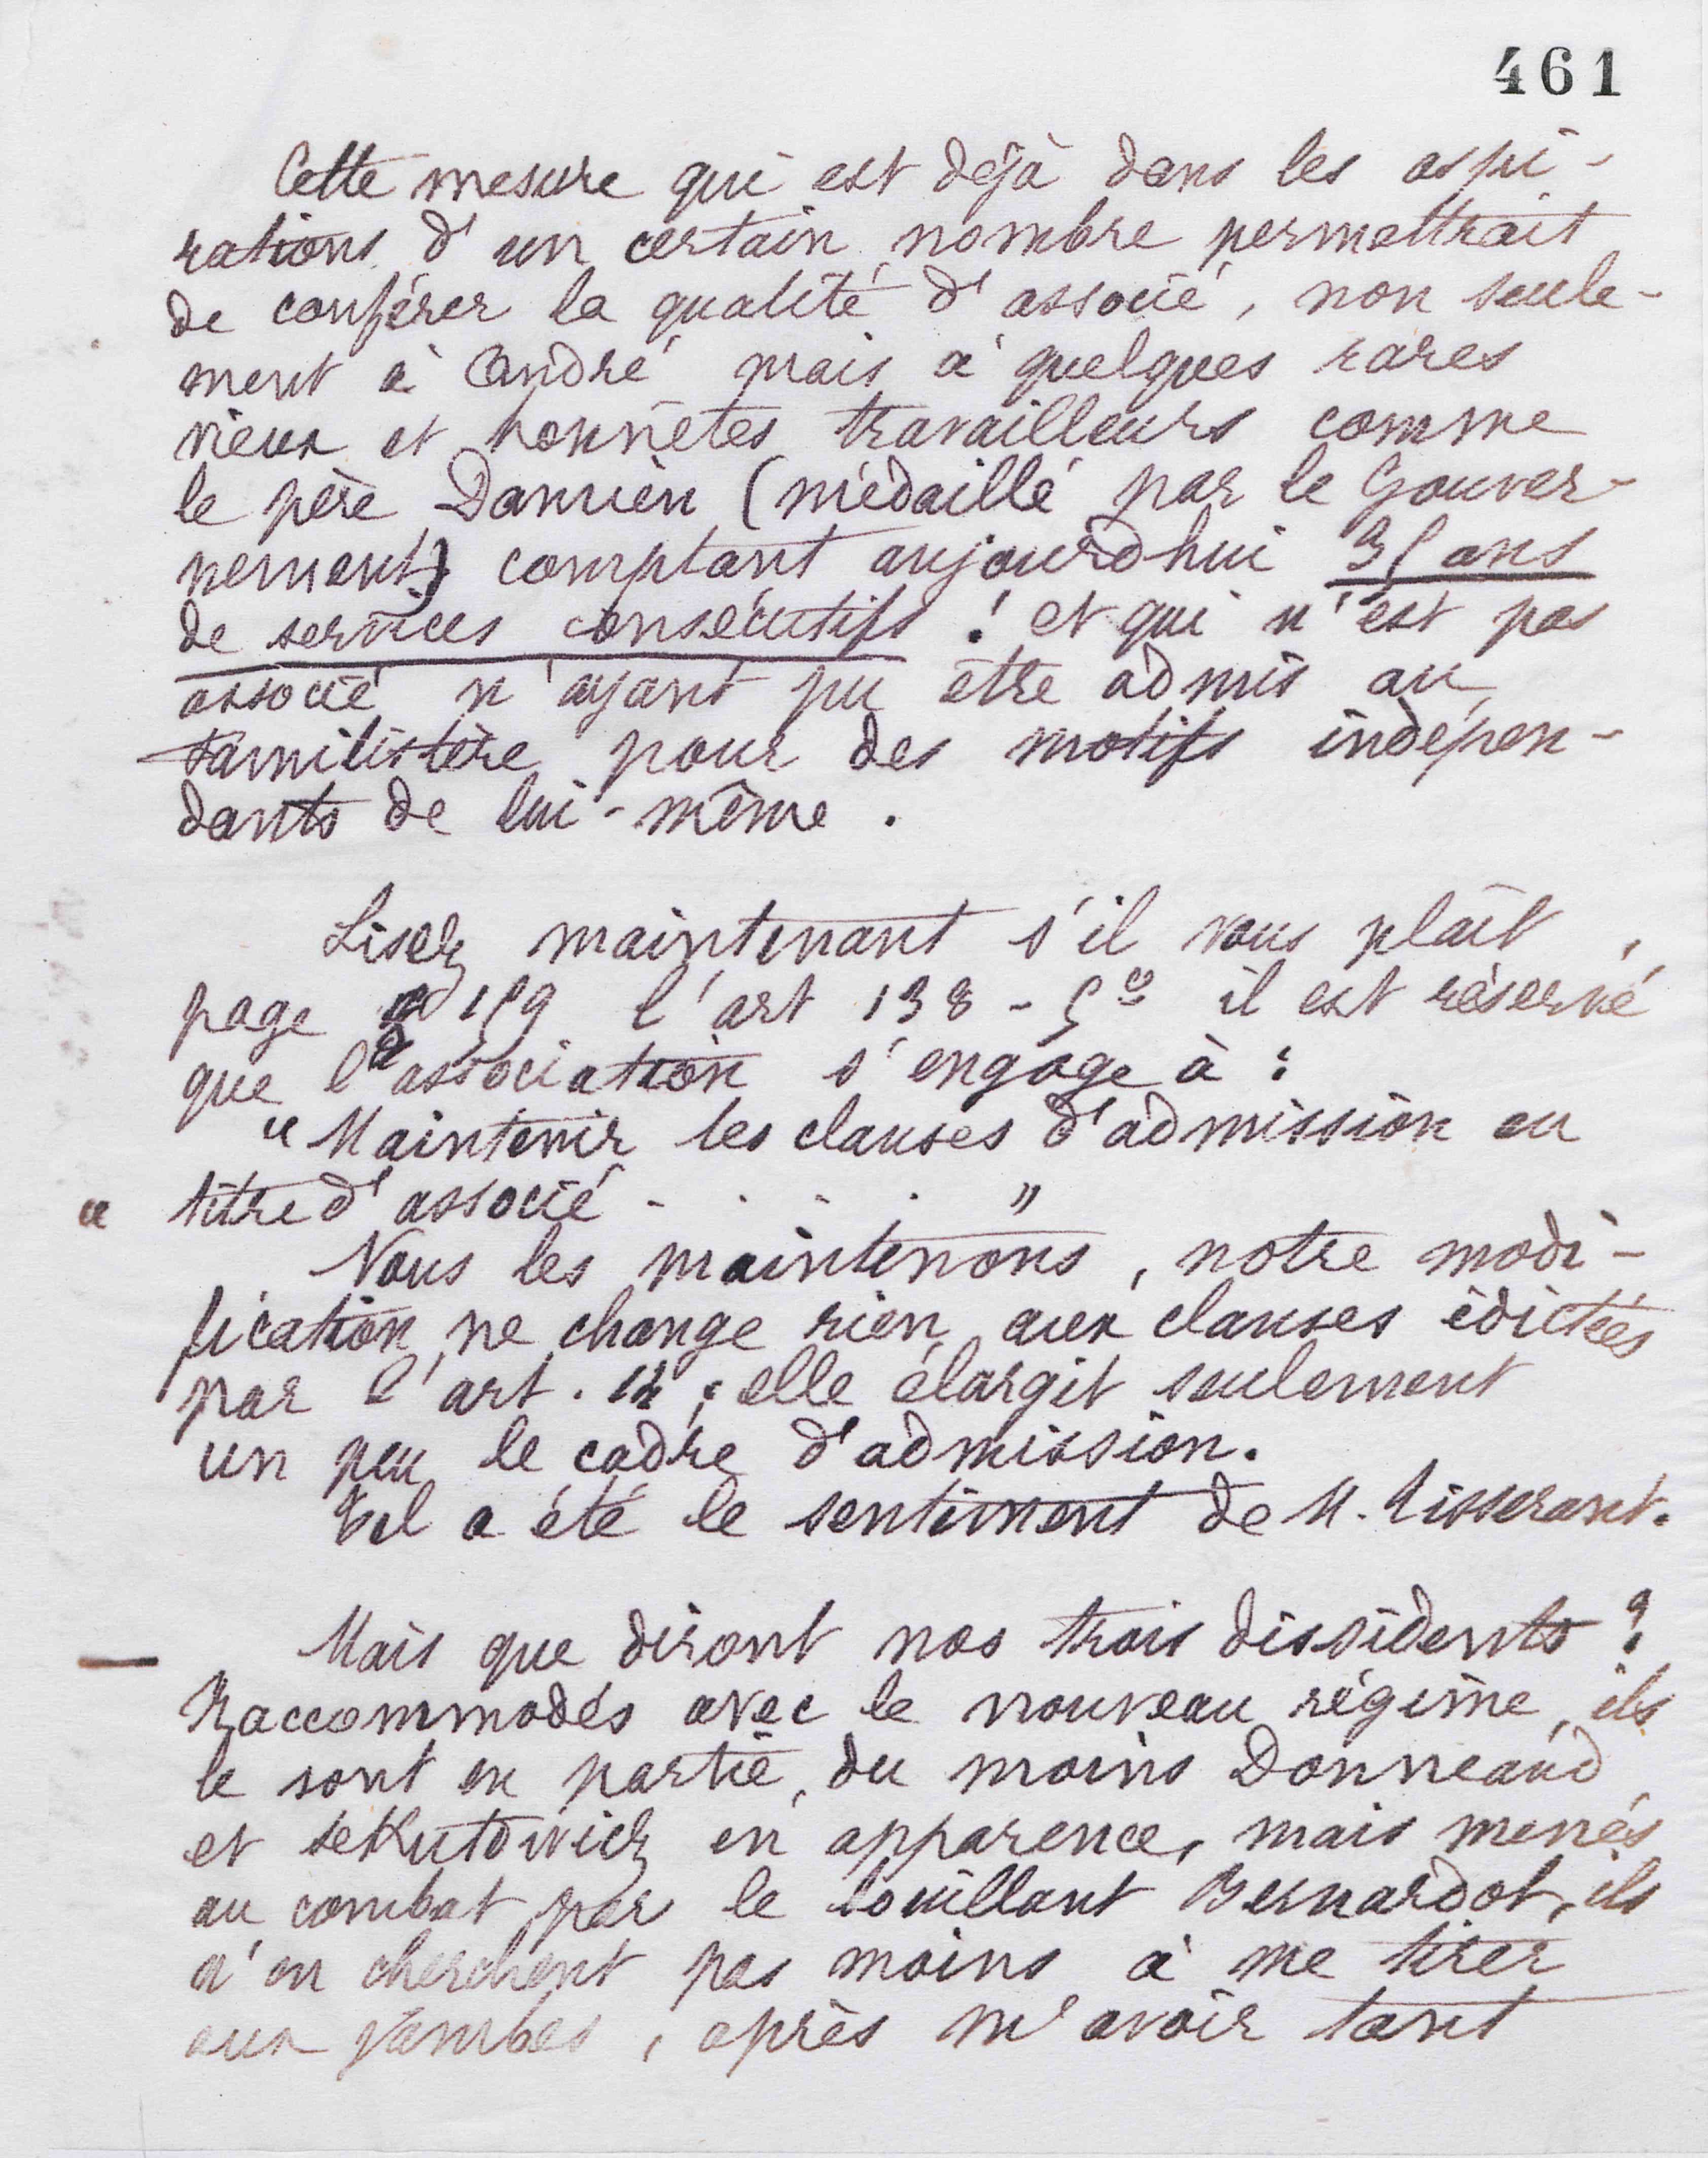 461
Cette mesure qui est déjà dans les aspi-
rations d'un certain nombre permettrait
de conférer la qualité d'associé, non seule-
ment à André mais à quelques rares
vieux et honnêtes travailleurs comme
le père Damien (médaillé par le Gouver-
nement) comptant aujourd'hui 35 ans
de services consécutifs ! et qui n'est pas
associé n'ayant pu être admis au
familistère pour des motifs indépen-
dants de lui-même.
Lisez maintenant s'il vous plaît,
page 159 l'art 138 - 5º il est réservé
que l'association s'engage à :
"Maintenir les clauses d'admission au
" titre d'associé - . . . "
Nous les maintenons, notre modi-
fication ne change rien aux clauses édictées
par l'art. 14 ; elle élargit seulement
un peu le cadre d'admission.
Tel a été le sentiment de M. Tisserant.
Mais que diront nos trois dissidents ?
Raccommodés avec le nouveau régime, ils
le sont en partie, du moins Donneaud
et Sekutowicz en apparence, mais menés
au combat par le bouillant Bernardot, ils
n'en cherchent pas moins à me tirer
aux jambes, après m'avoir tant